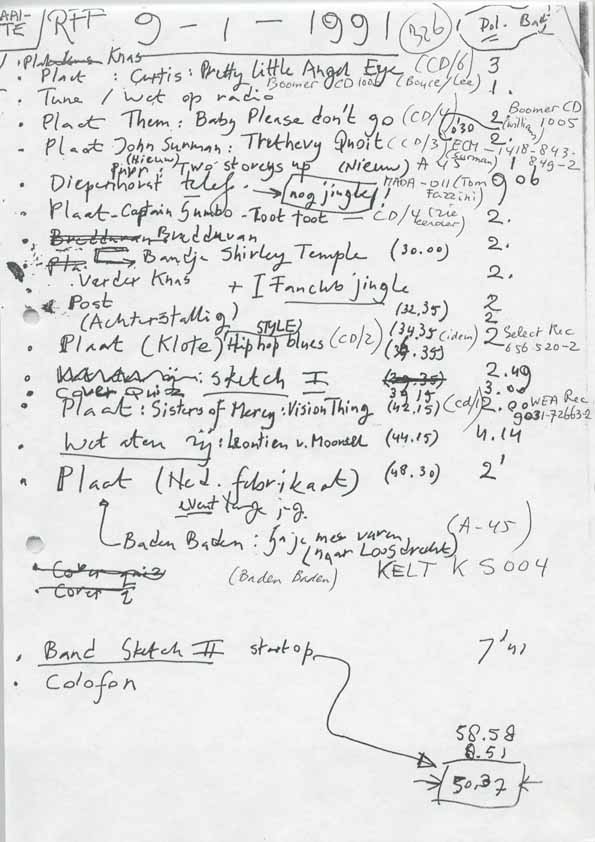 RFF 9-1-1991 B26 Pol. Badj
Knas
Plaat : Curtis: Pretty Little Angel Eye (CD/6) 3
Boomer CD 1005 (Boyce/Lee)
Tune / wat op radio 1.
Plaat Them: Baby Please don't go (CD/4) 2. Boomer CD 1005
Plaat John Surman: Trethevy Quoit (CD/3) ECM-1418-843. 2.
(Surman) 1 849-2
(Nieuw) : Two storeys up (Nieuw) A 45
MADA-011 (Tom Fazzini)
Diepenhorst telef. → nog jingle!
Plaat-Captain Jumbo-Toot toot = CD/4 (zie eerder) 2.
Bredduvan 2.
Bandje Shirley Temple (30.00)
Verder Knas 2.
+ 1 Fanclub jingle
Post (32.35) 2
(Achterstallig)
Plaat (Klote) Hip hop blues (CD/2) (34.35 (idem) 2 Select Rec
STYLE) 656 520-2
sketch I 2.49
Cover Quiz 39 15 3.00
Plaat: Sisters of Mercy: Vision Thing (42.15) (cd/1) 2.00 WEA Rec
9031-72663-2
Wat aten zij: Leontien v. Moorsel (44.15) 4.14
Plaat (Ned. fabrikaat) (48.30) 2'
Baden Baden: Ga je mee varen (A-45)
(naar Loosdrecht)
Cover quiz (Baden Baden) KELT K S004
Cover q
Band Sketch II start op 7'41
Colofon
58.58
8.51
50.37